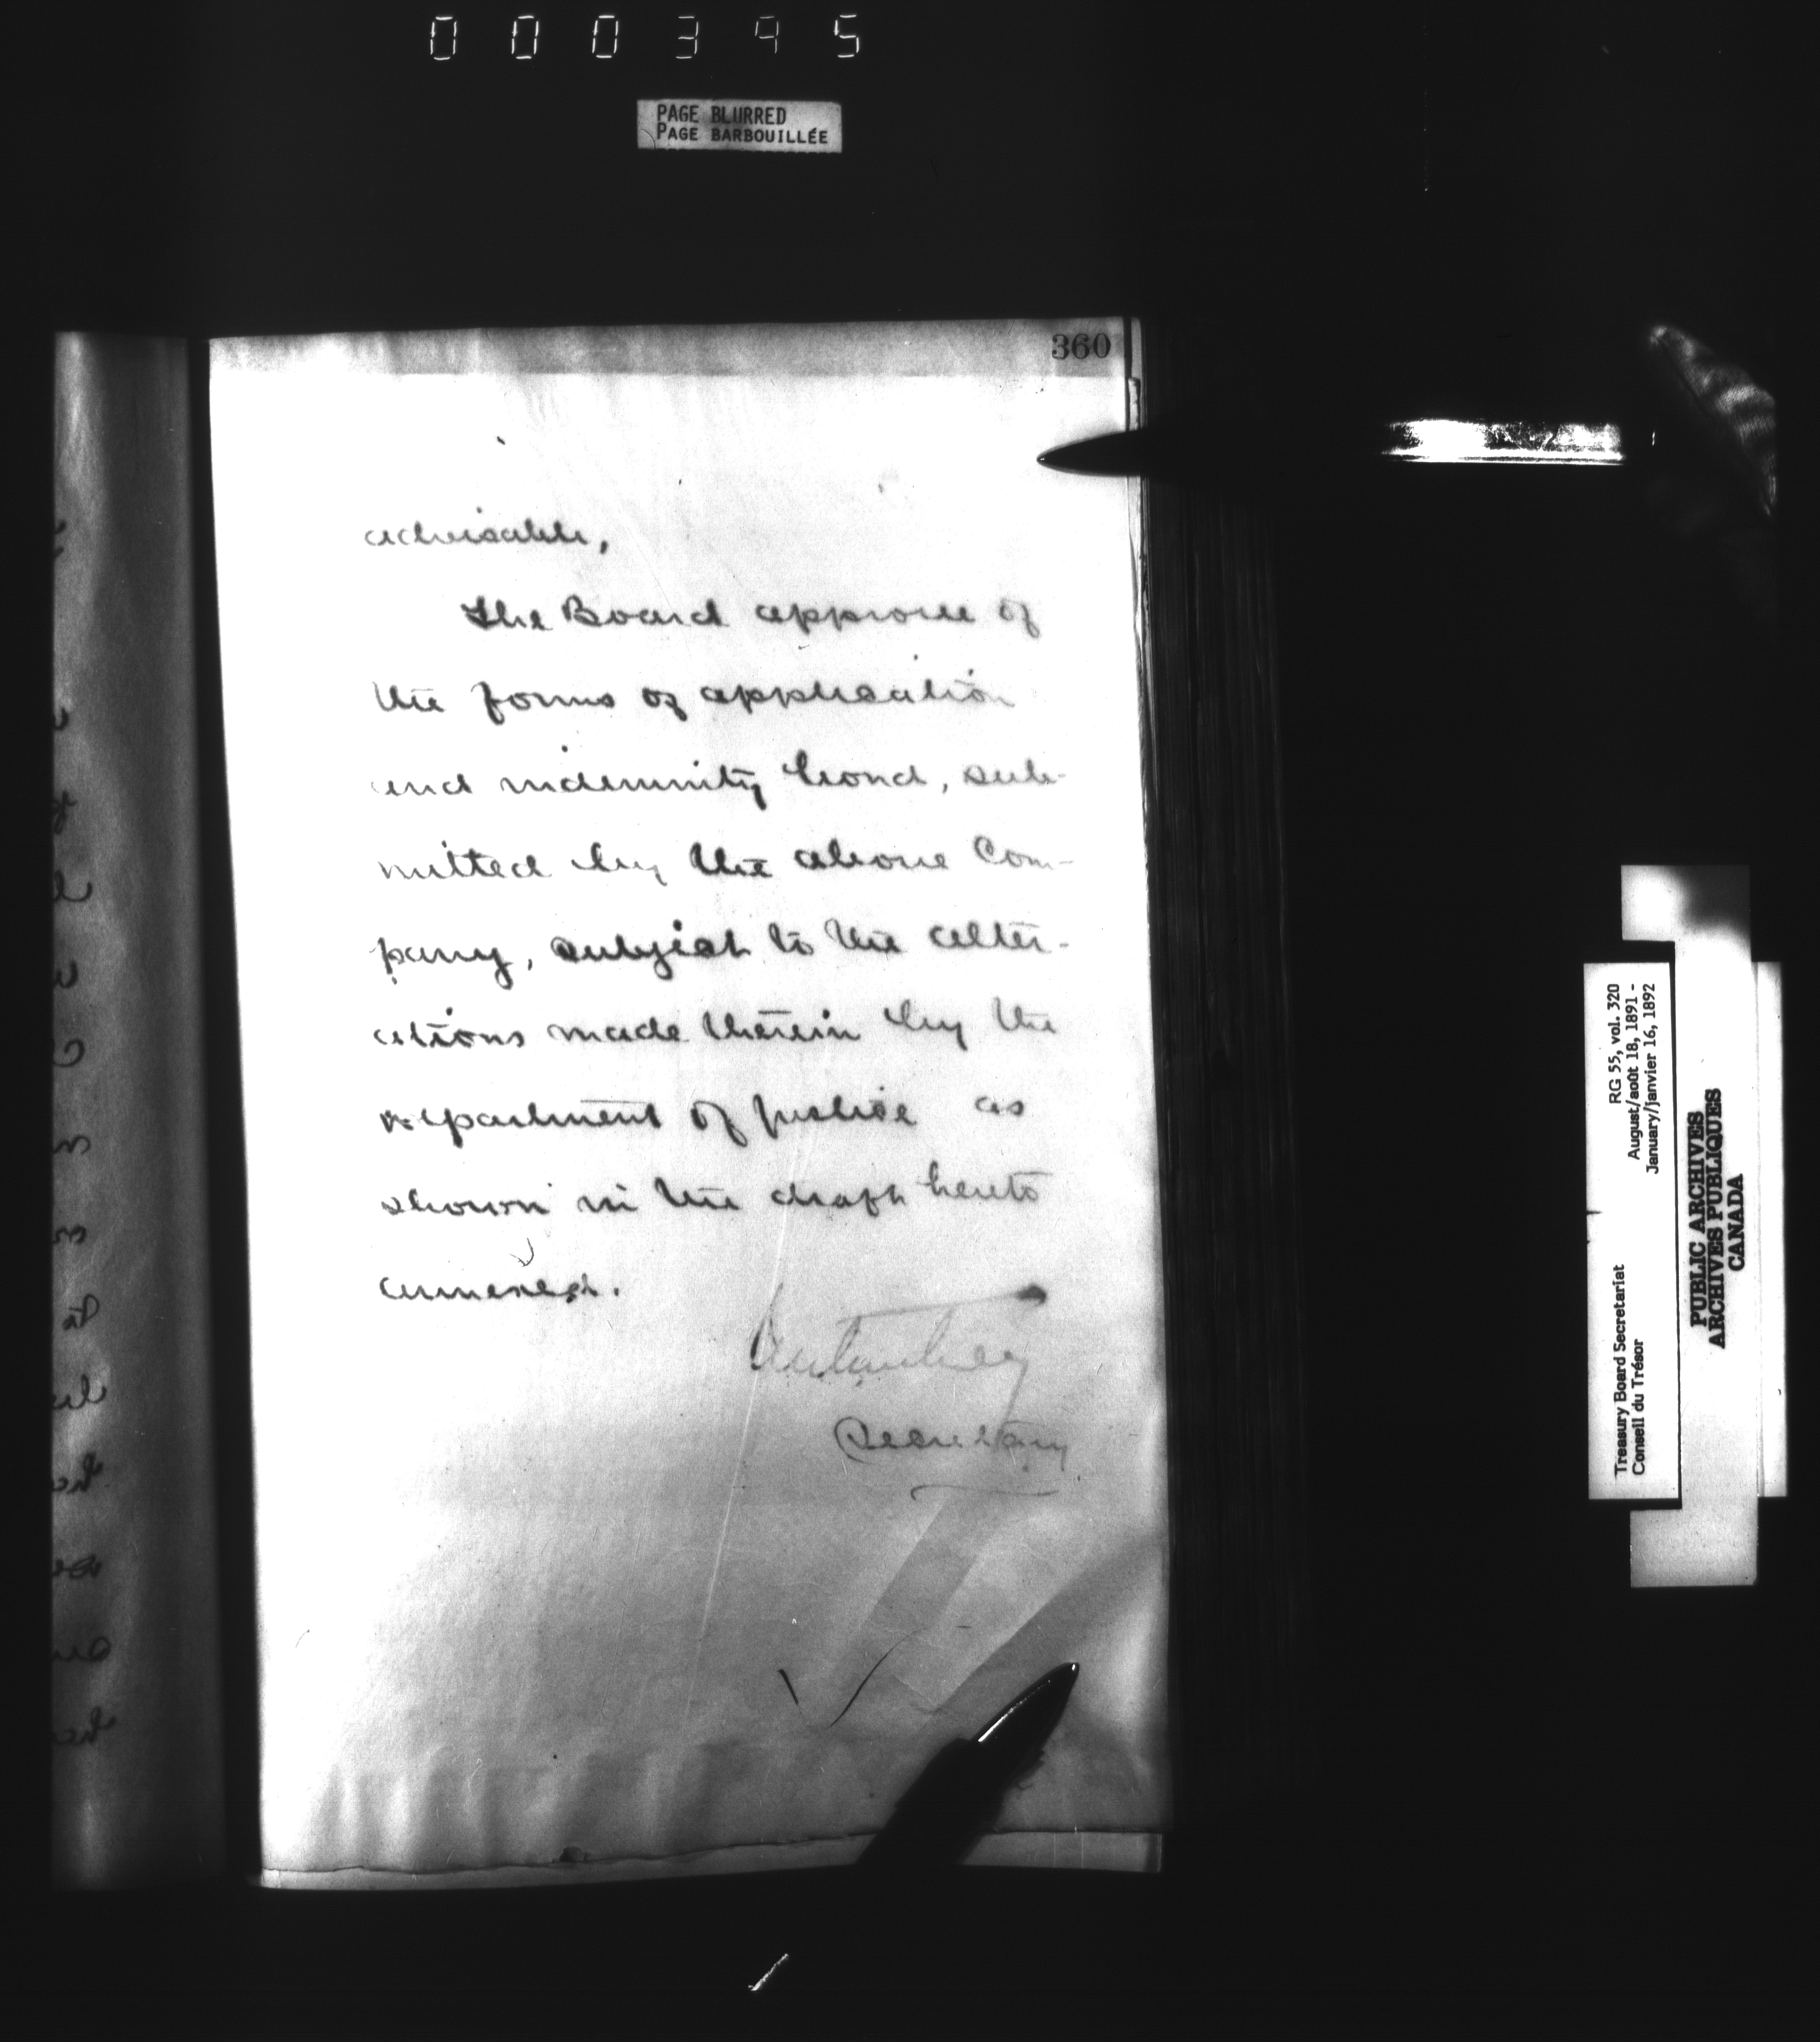 000395
PAGE BLURRED
PAGE BARBOUILLÉE
360
advisable,
The Board approve of
the forms of application
and indemnity bond, sub-
mitted by the above Com-
pany, subject to the alter-
ations made therein by the
Department of Justice as
shown in the draft hereto
annexed.
Secretary
RG 55, vol. 320
August/août 18, 1891 -
January/janvier 16, 1892
Treasury Board Secretariat
Conseil du Trésor
PUBLIC ARCHIVES
ARCHIVES PUBLIQUES
CANADA